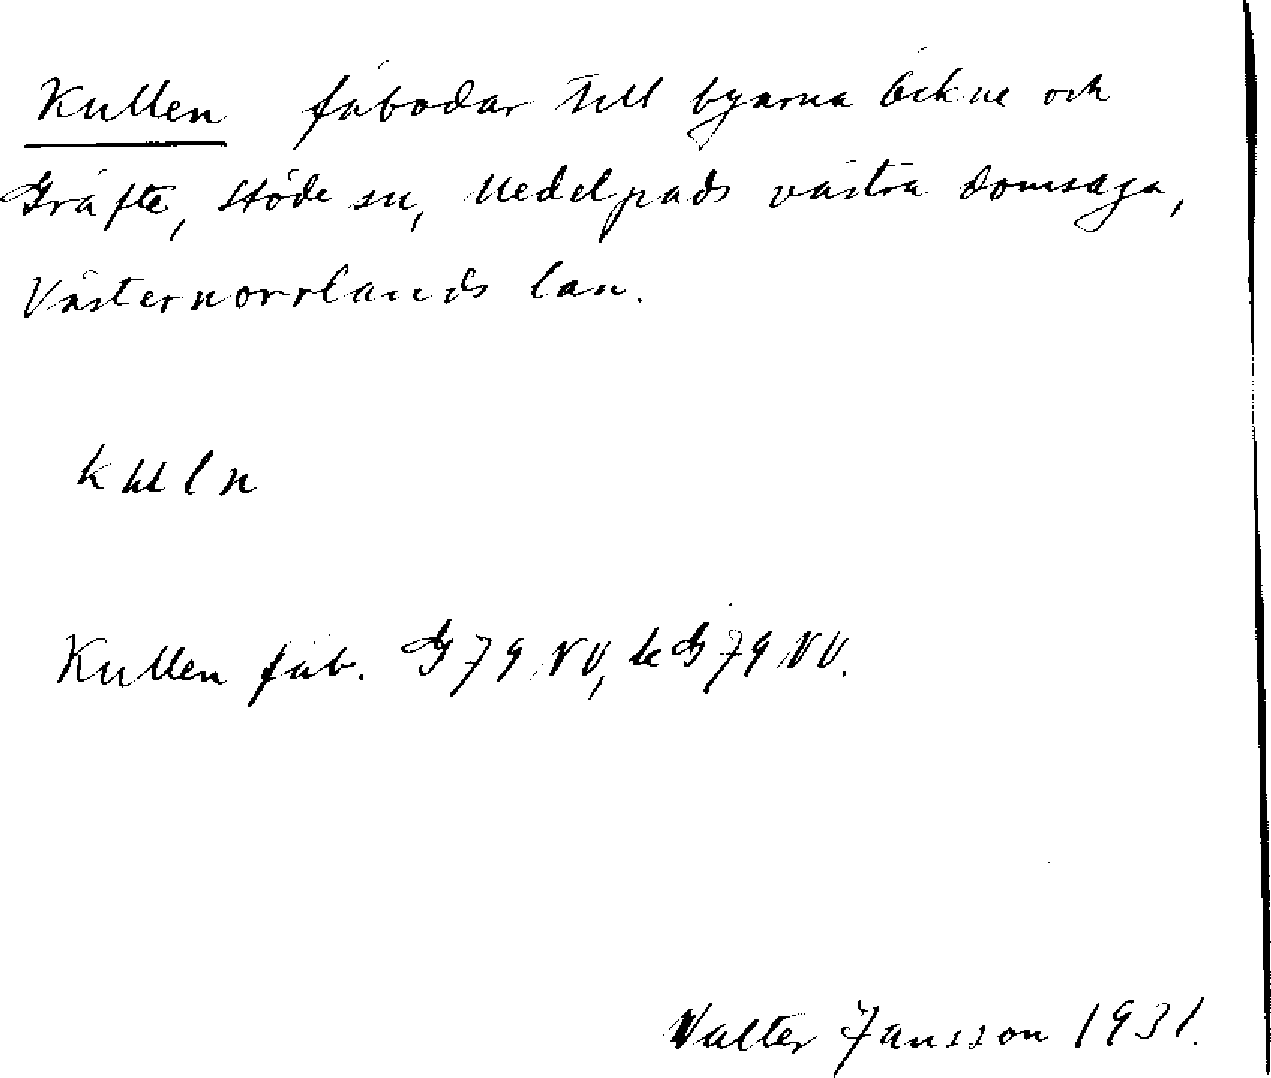 Kullen fäbodar till byarna Öckne och
Gräfte, Stöde sn, Medelpads västra domsaga,
Västernorrlands län.
kuln
Kullen fäb. G 79 NV, k G 79 NV.
Valter Jansson 1931.